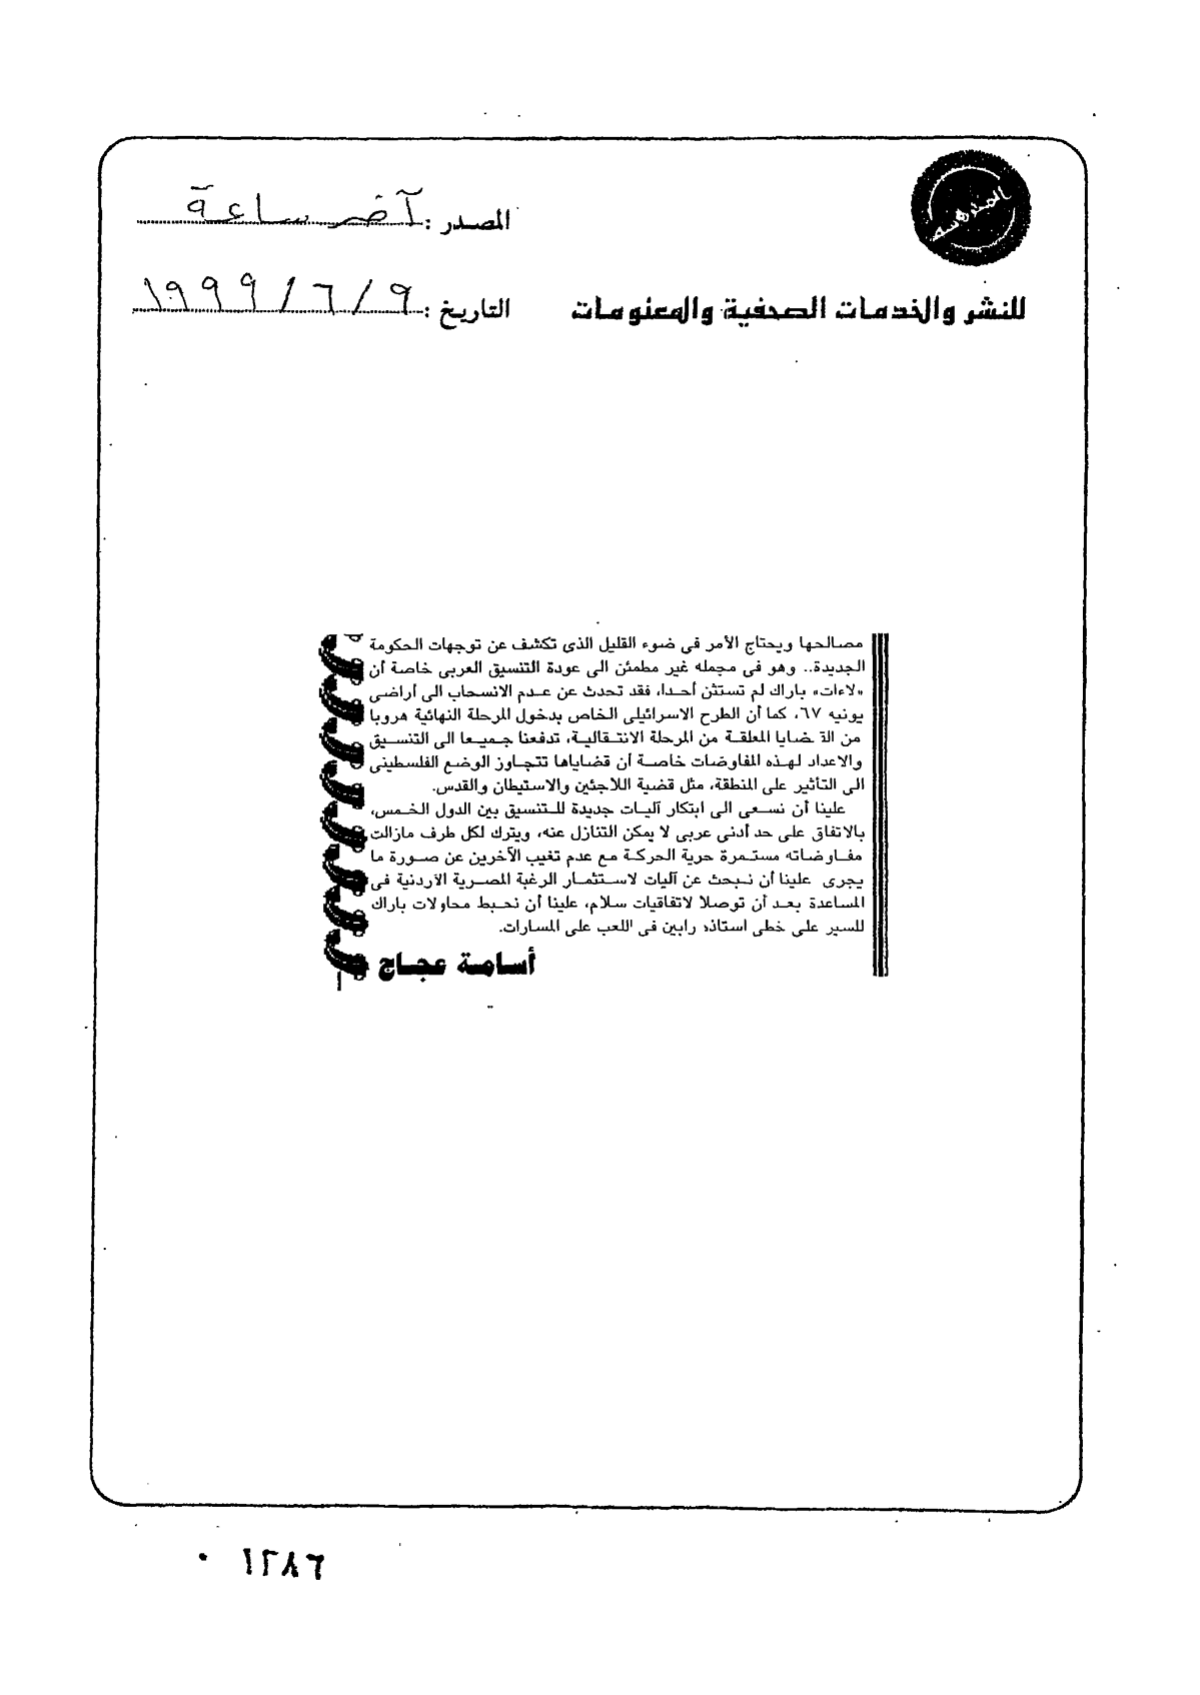 المصدر : آخر ساعة
للنشر والخدمات الصحفية والمعلومات
التاريخ : ٩ / ٦ / ١٩٩٩
مصالحها ويحتاج الأمر فى ضوء القليل الذى تكشف عن توجهات الحكومة
الجديدة.. وهو فى مجمله غير مطمئن الى عودة التنسيق العربى خاصة أن
«لاءات» باراك لم تستثن أحدا، فقد تحدث عن عدم الانسحاب الى أراضى
يونيه ٦٧، كما أن الطرح الاسرائيلى الخاص بدخول المرحلة النهائية هروبا
من القضايا المعلقة من المرحلة الانتقالية، تدفعنا جميعا الى التنسيق
والاعداد لهذه المفاوضات خاصة أن قضاياها تتجاوز الوضع الفلسطينى
الى التأثير على المنطقة، مثل قضية اللاجئين والاستيطان والقدس.
علينا أن نسعى الى ابتكار آليات جديدة للتنسيق بين الدول الخمس،
بالاتفاق على حد أدنى عربى لا يمكن التنازل عنه، ويترك لكل طرف مازالت
مفاوضاته مستمرة حرية الحركة مع عدم تغيب الآخرين عن صورة ما
يجرى علينا أن نبحث عن آليات لاستثمار الرغبة المصرية الأردنية فى
المساعدة بعد أن توصلا لاتفاقيات سلام، علينا أن نحبط محاولات باراك
للسير على خطى استاذه رابين فى اللعب على المسارات.
أسامة عجاج
١٢٨٦